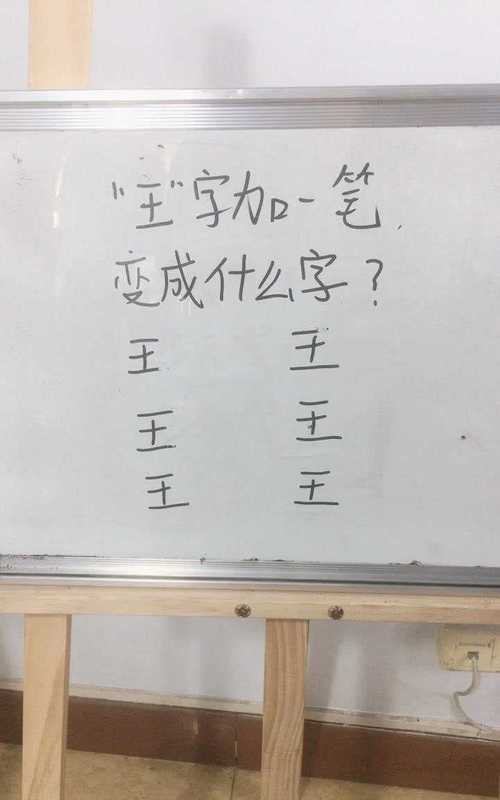 "王"字加一笔,
变成什么字?
王 王
王 王
王 王